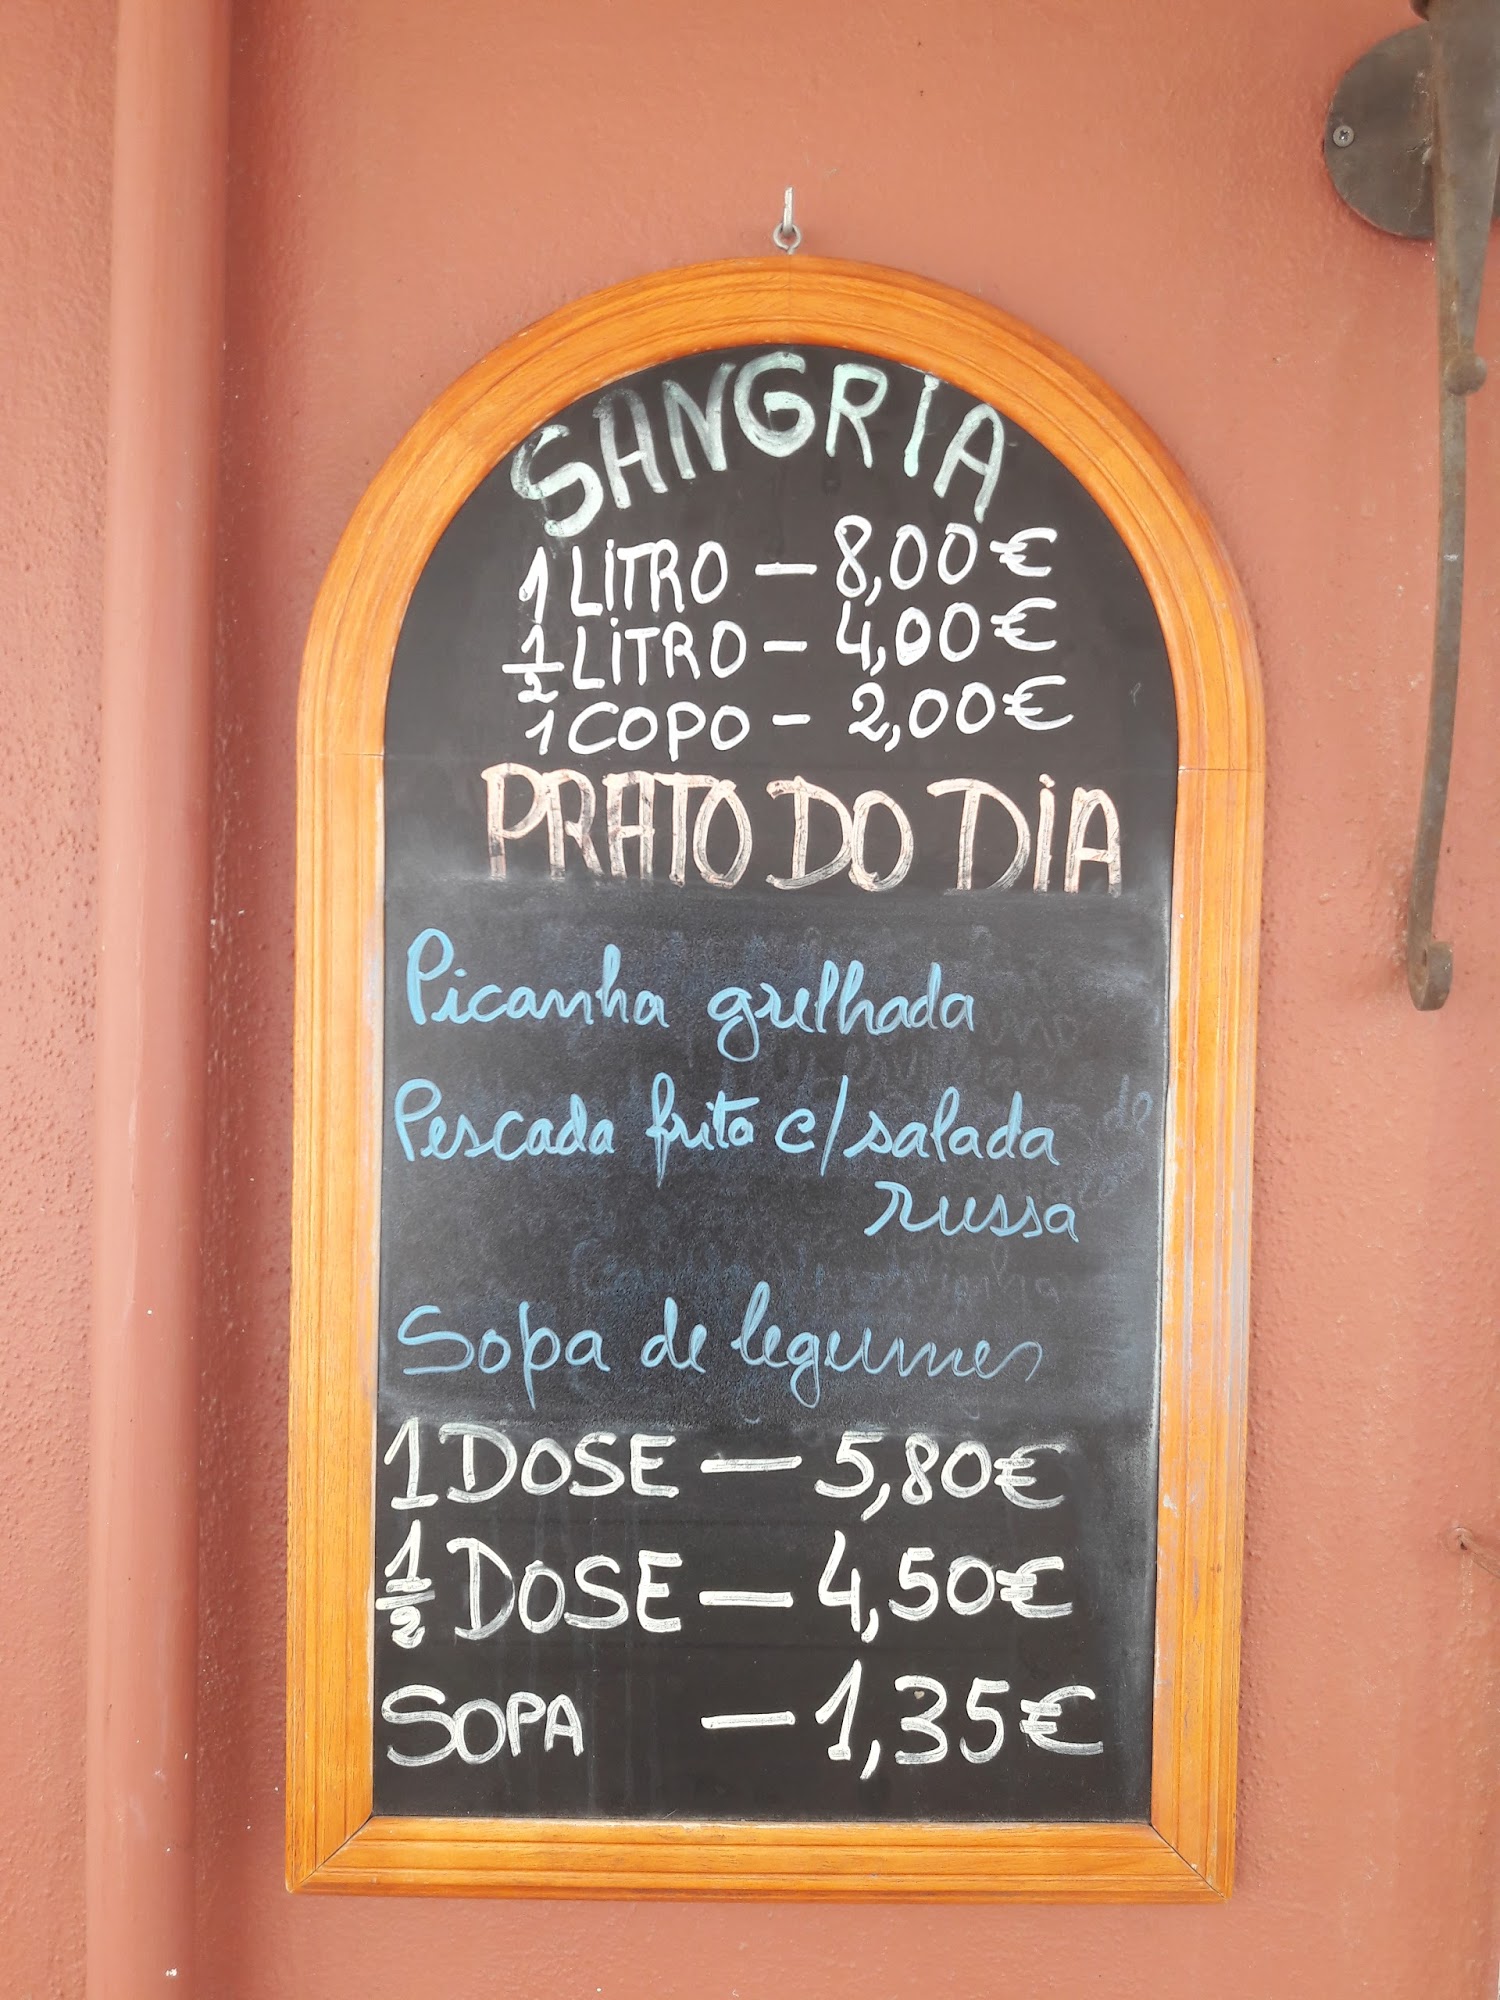 SANGRIA
1 LITRO — 8,00€
1/2 LITRO — 4,00€
1 COPO — 2,00€
PRATO DO DIA
Picanha grelhada
Pescada frita c/ salada
russa
Sopa de legumes
1 DOSE — 5,80€
1/2 DOSE — 4,50€
SOPA — 1,35€